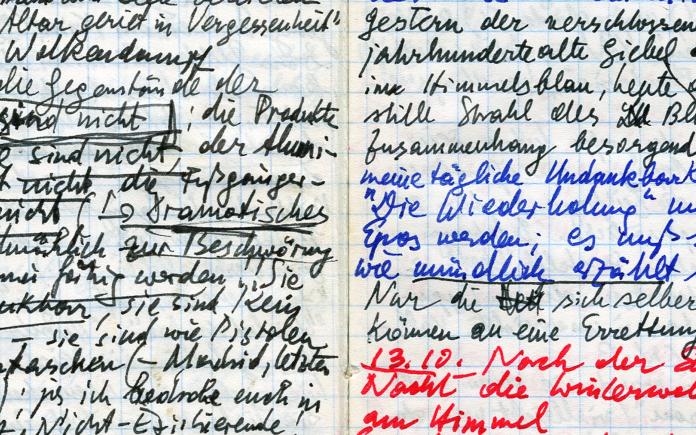 Altar geriet in Vergessenheit"
Wolkendampf
die Gegenstände der
sind nicht ; die Produkte
sind nicht, der Alumi-
nicht, die Fußgänger-
nicht (→ Dramatisches
zur Beschwörung
fähig werden, "Sie
sie sind, Kein
– sie sind wie Pistolen
taschen (– Madrid, letzten
ich bedrohe euch in
Nicht-Existierende
gestern der verschlossen
jahrhundertealte Giebel
ins Himmelsblau, hegte
stille Strahl des Bl
Zusammenhang besorgend
meine tägliche Undankbark
"Die Wiederholung"
Epos werden; es muß
wie mündlich erzählt
Nur die sich selber
können an eine Errettung
13.10. Nach der
Nacht die Winterwol
am Himmel